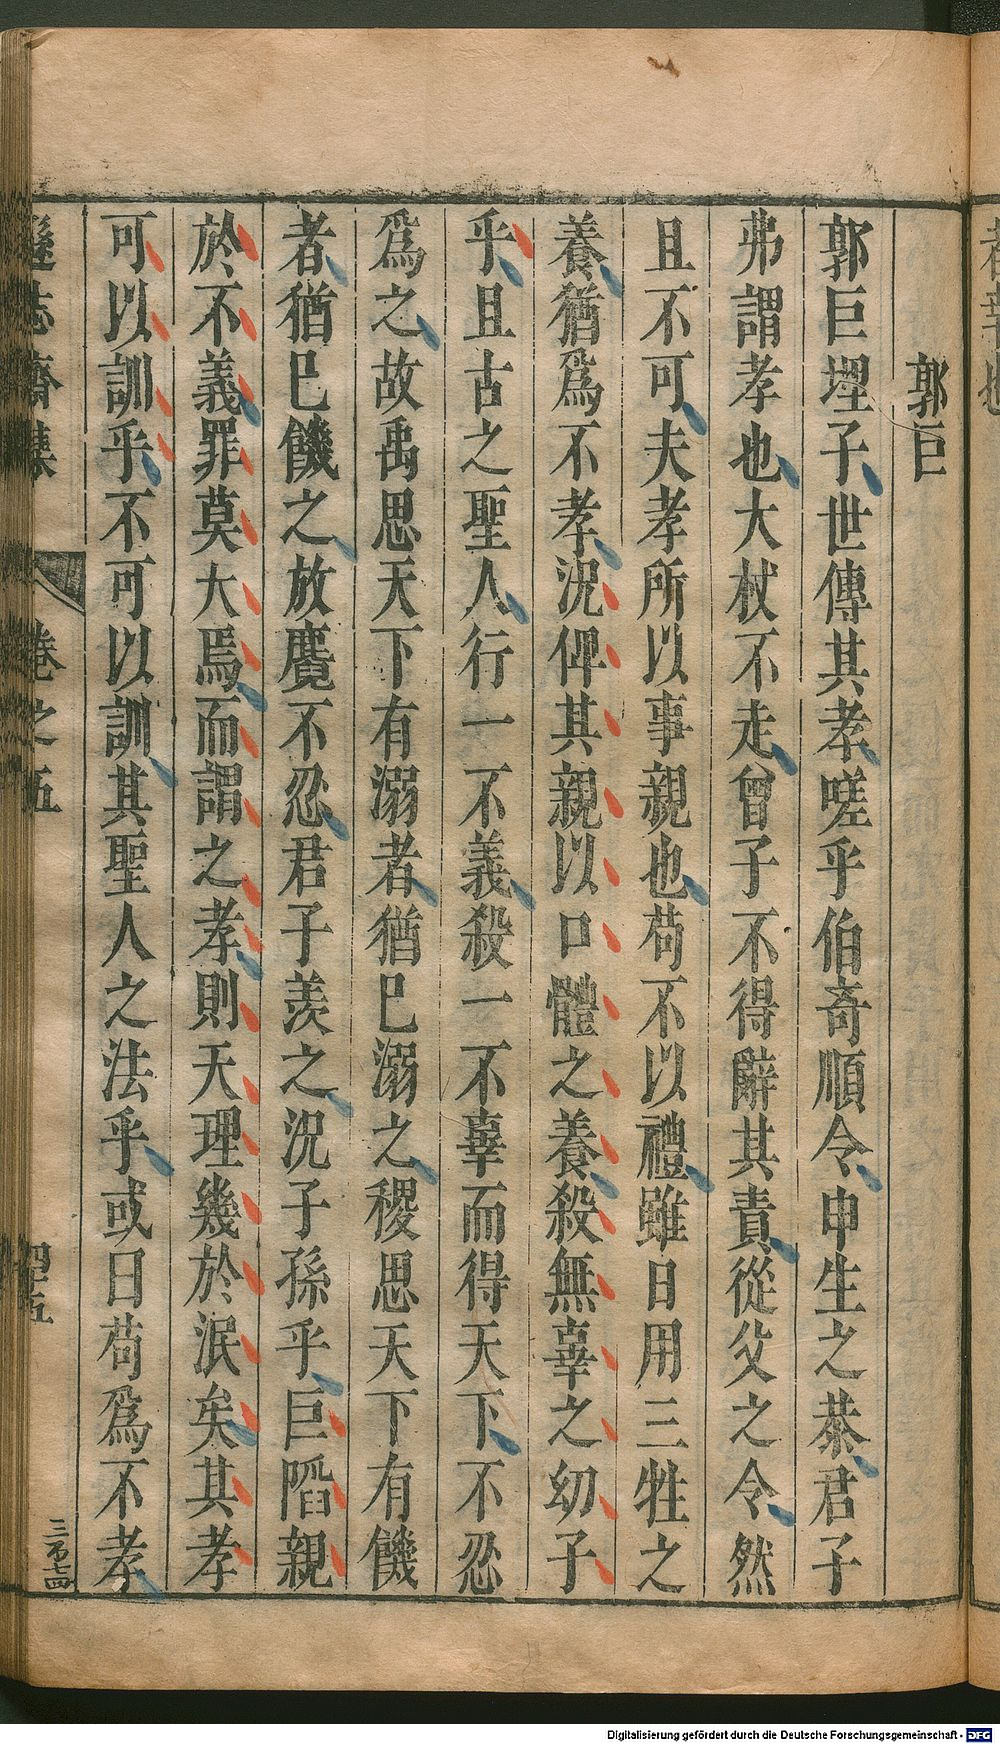 郭巨
郭巨埋子世傳其孝嗟乎伯奇順令申生之恭君子
弗謂孝也大杖不走曾子不得辭其責從父之令然
且不可夫孝所以事親也苟不以禮雖日用三牲之
養猶爲不孝況俾其親以口體之養殺無辜之幼子
乎且古之聖人行一不義殺一不辜而得天下不忍
爲之故禹思天下有溺者猶已溺之稷思天下有饑
者猶已饑之放麑不忍君子羨之況子孫乎巨陷親
於不義罪莫大焉而謂之孝則天理幾於泯矣其孝
可以訓乎不可以訓其聖人之法乎或曰苟爲不孝
遜志齋集 卷之五 四五
Digitalisierung gefördert durch die Deutsche Forschungsgemeinschaft - DFG